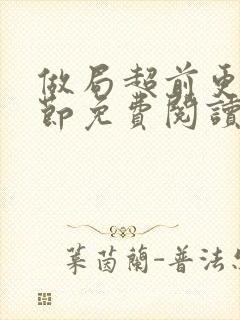 做局超前更
節免費閱讀
葉茵蘭-普法